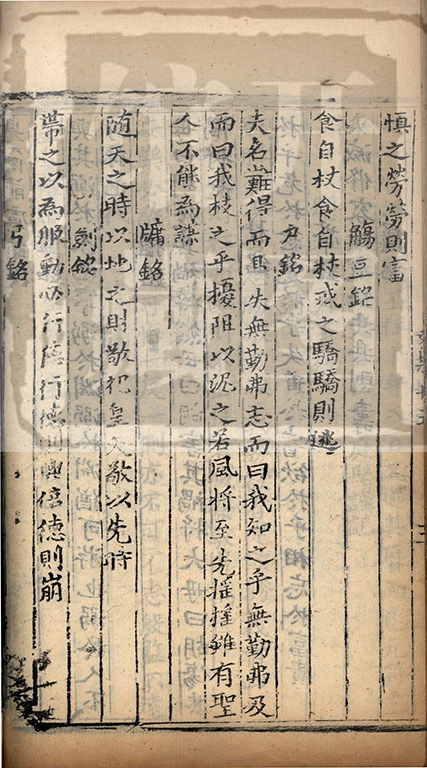 慎之勞勞則富
觴豆銘
食自杖食自杖戒之驕驕則逃
户銘
夫名難得而易失無勤弗志而曰我知之乎無勤弗及
而曰我杖之乎擾阻以泥之若風將至先搖搖雖有聖
人不能為謀
牖銘
随天之時以地之財敬祀皇天敬以先時
劍銘
帶之以為服動必行德行德則興倍德則崩
弓銘